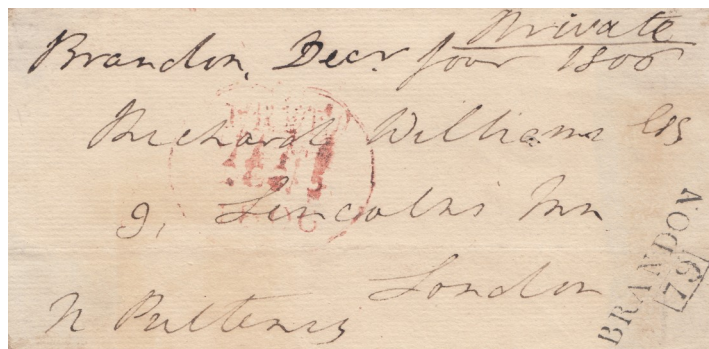 Private
Brandon, Decr four 1806
Richard Williams Esq
9, Lincolns Inn
London
BRANDON
79